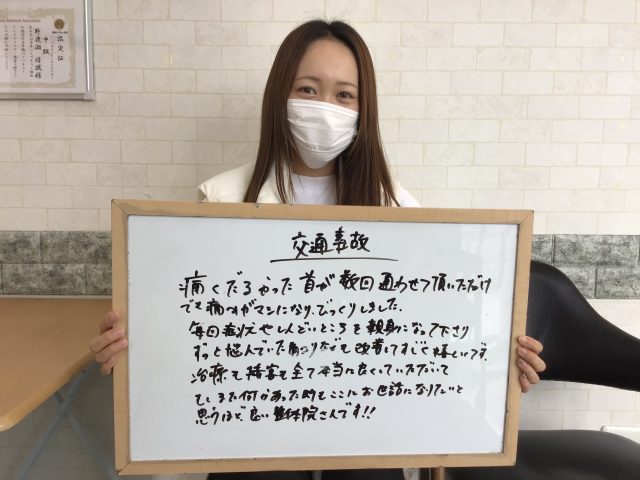 認定証
中級
交通事故
痛くだるかった首が数回通わせて頂いただけ
でも痛みがマシになり、びっくりしました。
毎回 しんどいところを親身になって下さり
ずっと悩んでいた肩こりなども改善してすごく嬉しいです。
治療も接客も全て本当に良くしていただいて
また何かあった時もここにお世話になりたいと
思うほど、良い整体院さんです!!